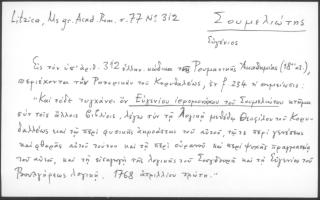 Litzica, Ms gr. Acad. Rom. σ. 77 Nº 312
Σουμελιώτης
Εὐγένιος
Εἰς τὸν ὑπ' ἀρ. 312 ἑλλην. κώδικα τῆς Ρουμανικῆς Ἀκαδημίας (18ου αἰ.),
περιέχοντα τὴν Ρητορικὴν τοῦ Κορυδαλλέως, ἐν φ. 234 ἡ σημείωσις:
"Καὶ τόδε τυγχάνει ὂν Εὐγενίου ἱερομονάχου τοῦ Σουμελιώτου κτῆμα
σὺν τοῖς ἄλλοις βιβλίοις, λέγω σὺν τῇ Λογικῇ μεθόδῳ Θεοφίλου τοῦ Κορυ-
δαλλέως καὶ τῇ περὶ φυσικῆς ἀκροάσεως τοῦ αὐτοῦ, τῇ τε περὶ γενέσεως
καὶ φθορᾶς αὐτοῦ τούτου καὶ τῇ περὶ οὐρανοῦ καὶ περὶ ψυχῆς πραγματείᾳ
τοῦ αὐτοῦ, καὶ τῇ εἰσαγωγῇ τῆς λογικῆς τοῦ Σουγδουρῆ καὶ τῇ Εὐγενίου τοῦ
Βουλγάρεως λογικῇ. 1768 ἀπριλλίου πρώτῃ."